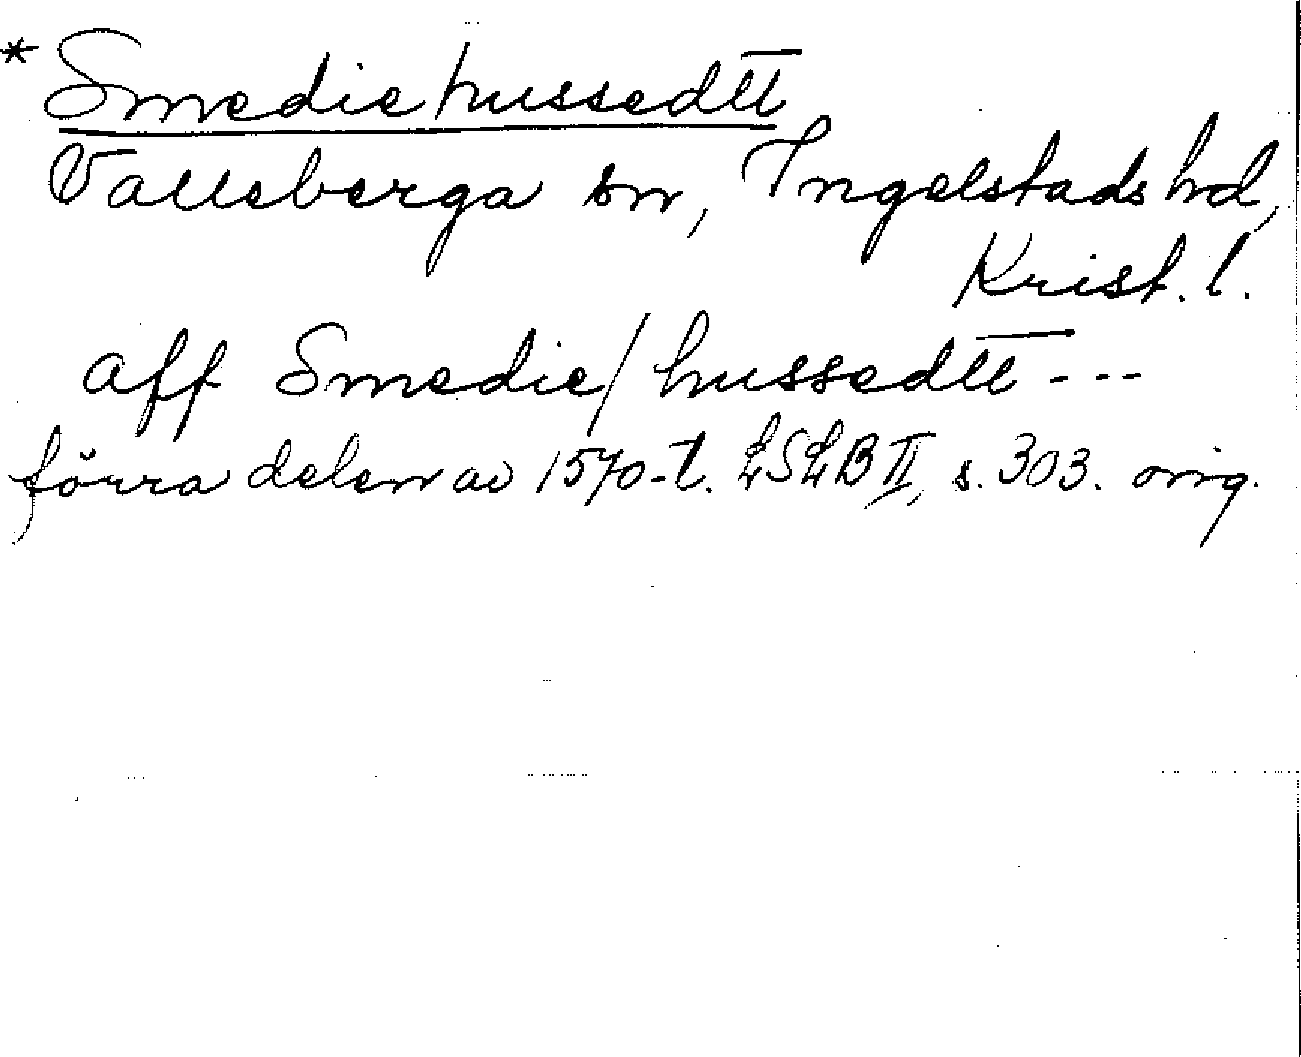 * Smediehussedtt
Valleberga sn, Ingelstads hd,
Krist. l.
aff Smedie/hussedtt ---
förra delen av 1570-t. LSLB II, s. 303. orig.